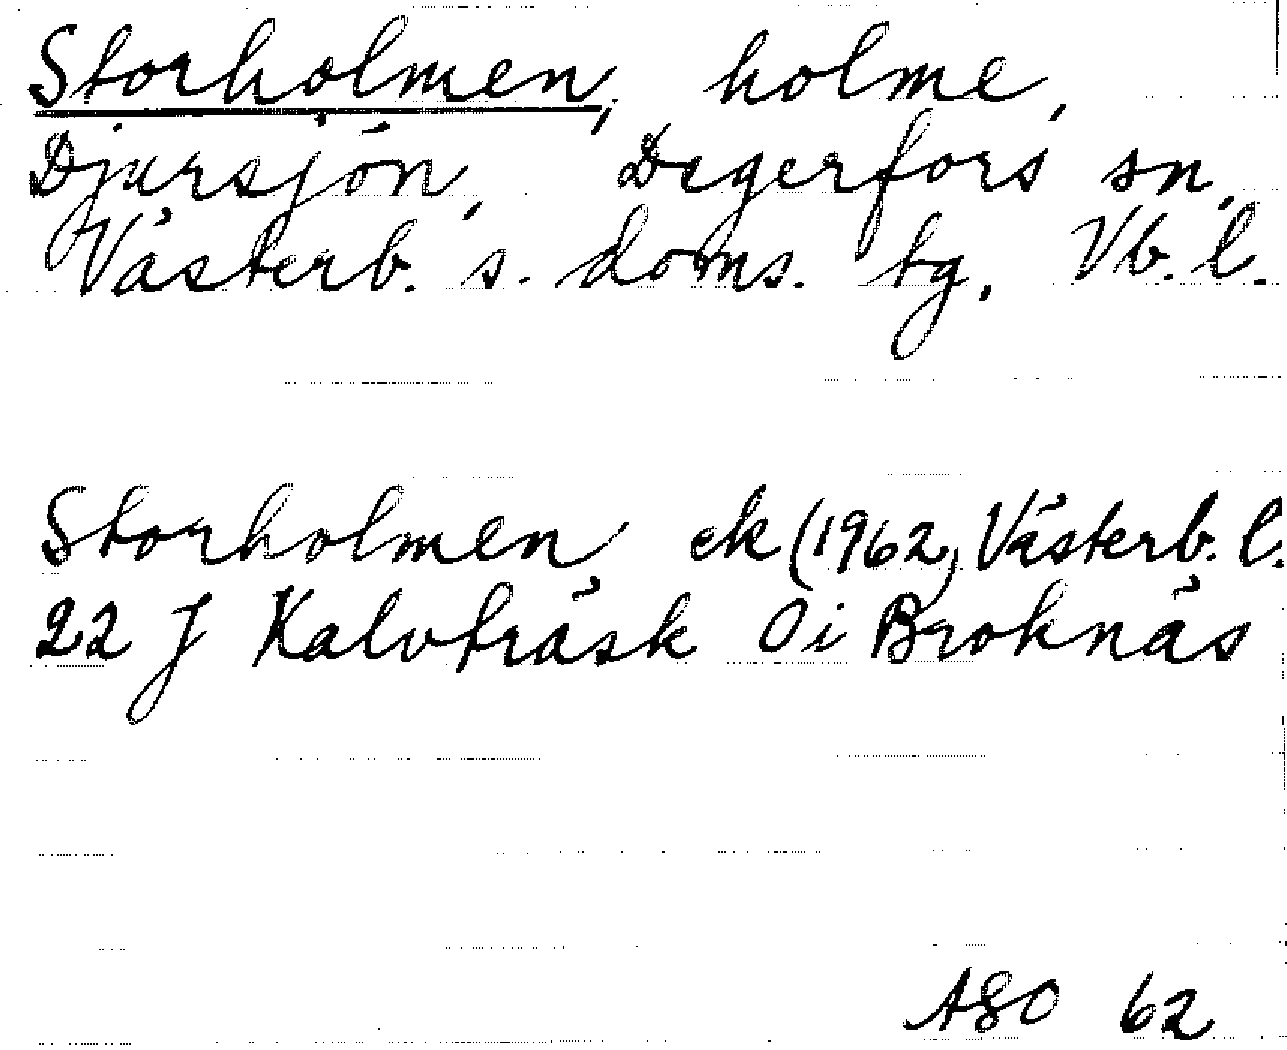 Storholmen, holme,
Djursjön, Degerfors sn,
Västerb. s. doms. tg, Vb. l.
Storholmen ek (1962) Västerb. l.
22 J Kalvträsk 0 i Broknäs
ASO 62